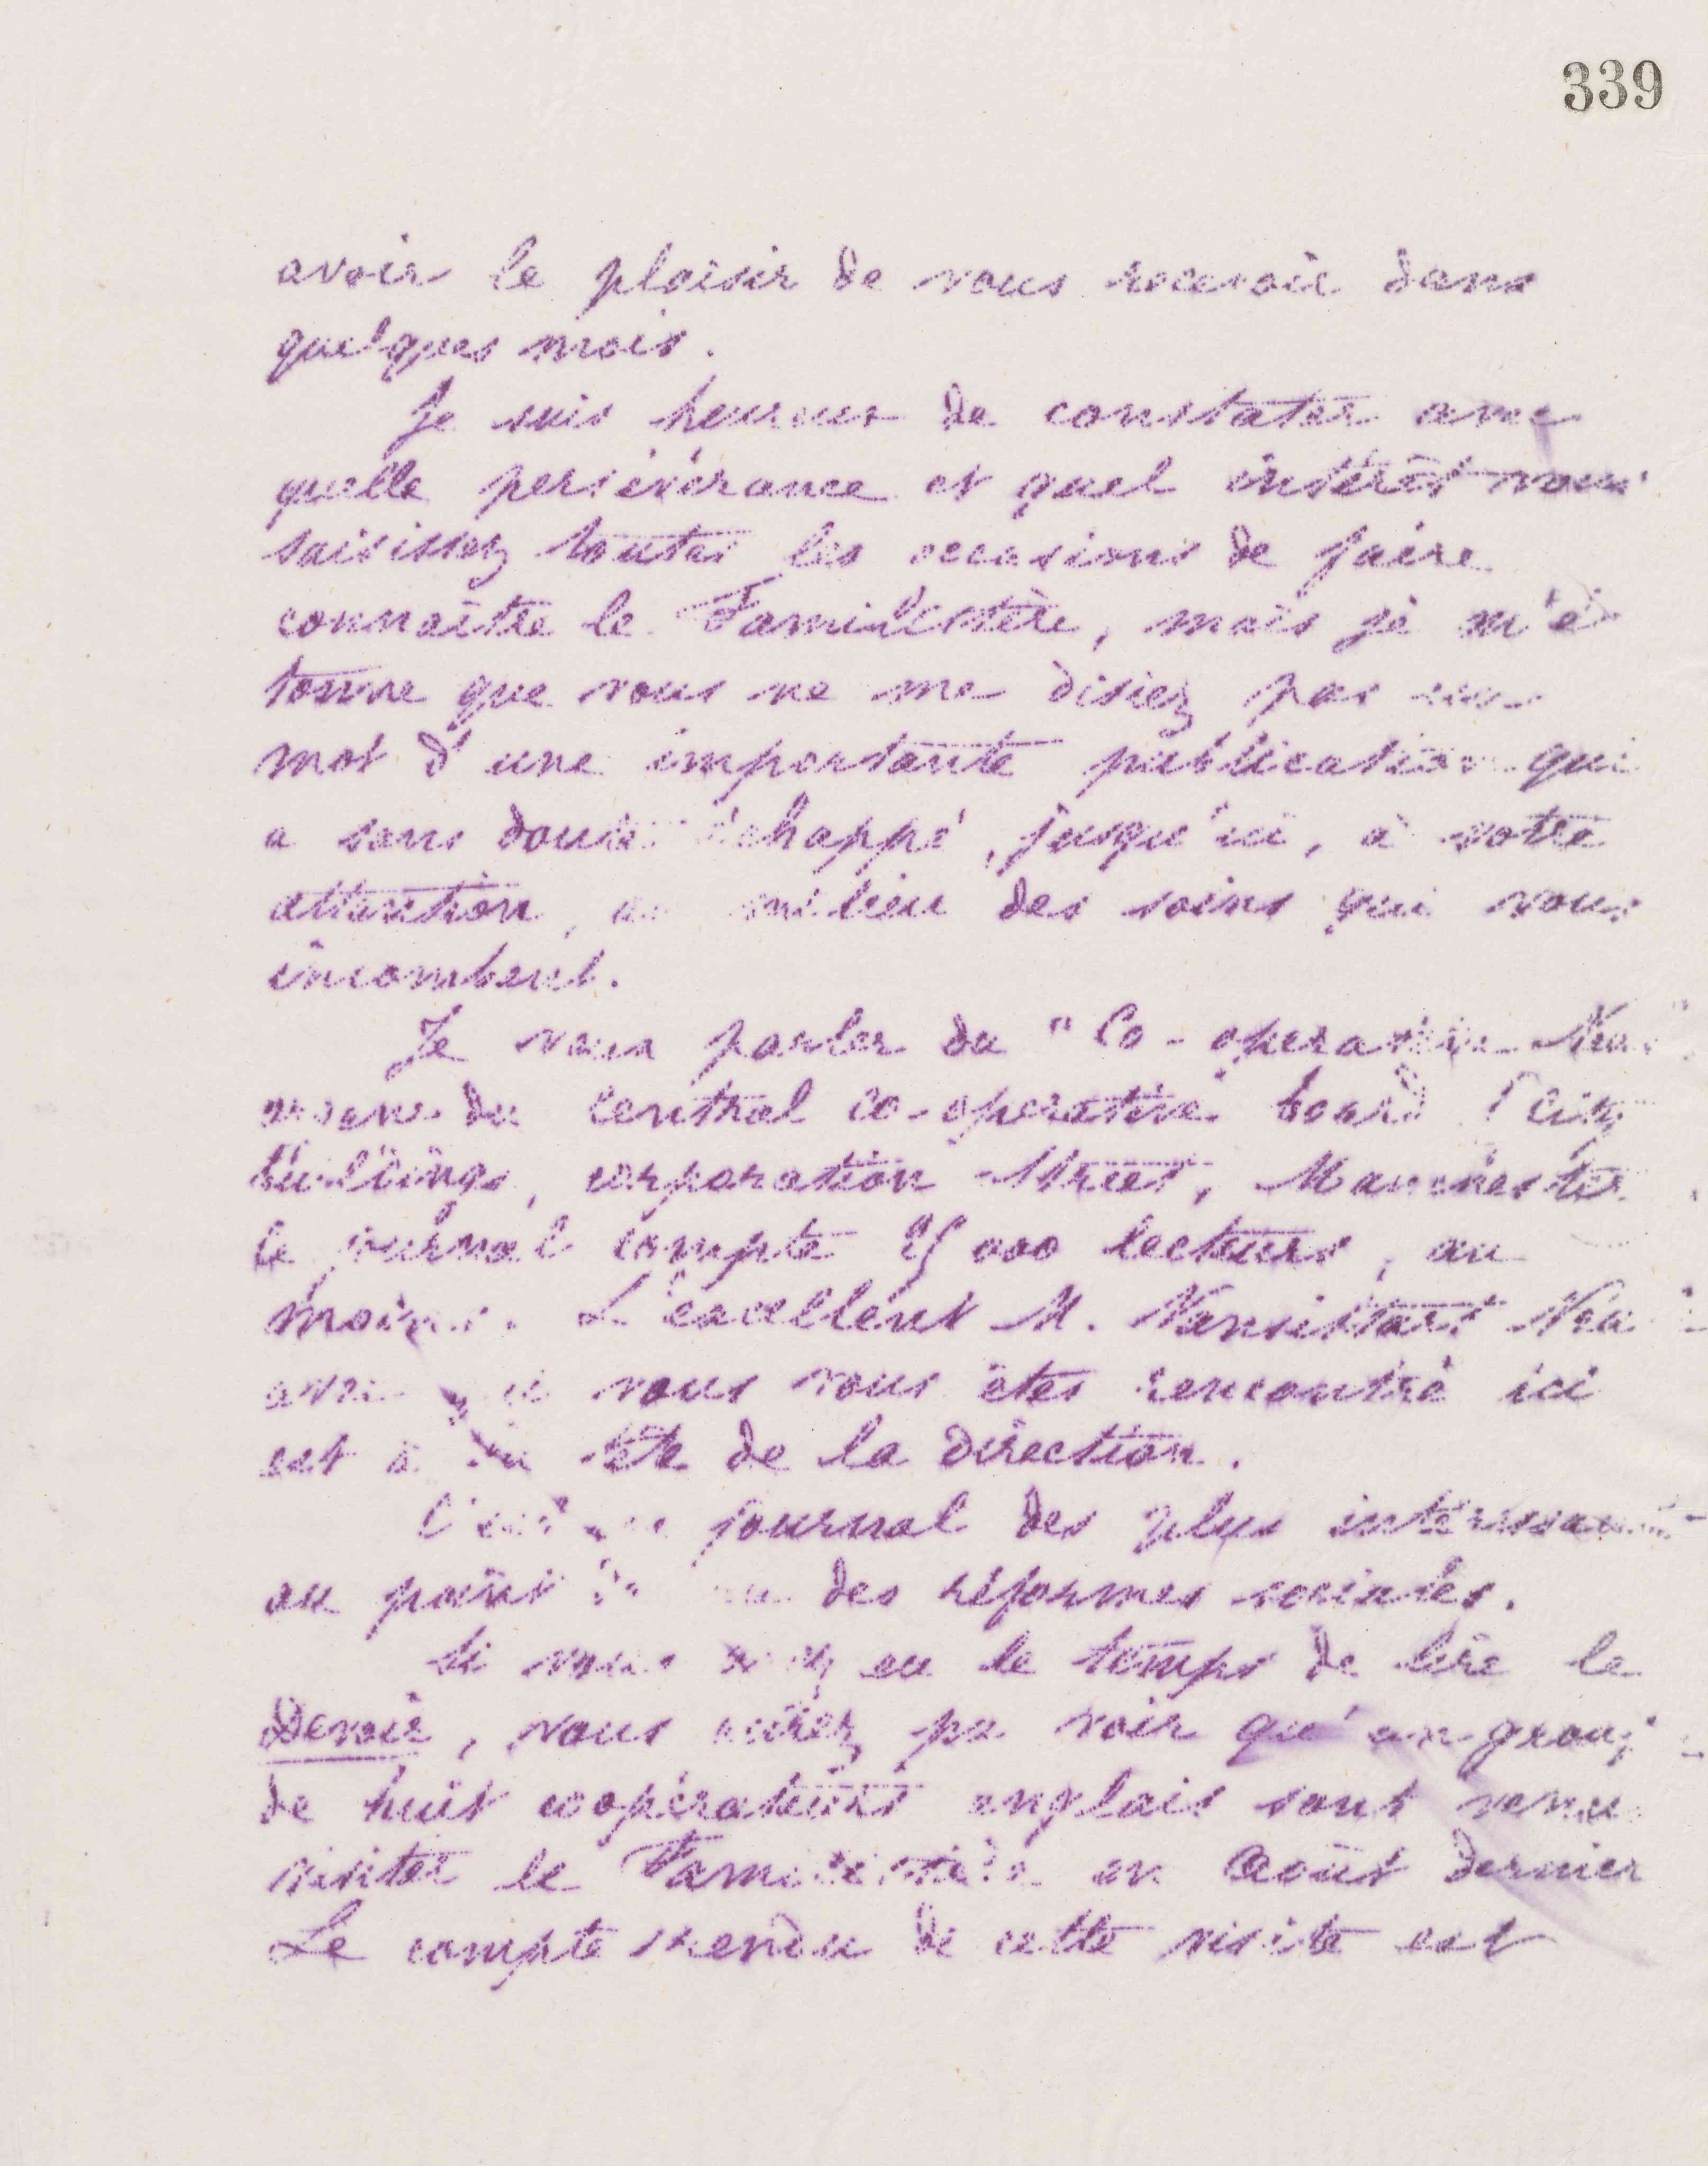 339
avoir le plaisir de vous recevoir dans
quelques mois.
Je suis heureux de constater avec
quelle persévérance et quel intérêt vous
saisissez toutes les occasions de faire
connaître le Familistère, mais je m'é
tonne que vous ne me disiez pas un
mot d'une importante publication qui
a sans doute échappé, jusqu'ici, à votre
attention, au milieu des soins qui vous
incombent.
Je veux parler du "Co-operative News"
organe du central co-operative board, City
buildings, corporation Street, Manchester.
Le journal compte 000 lecteurs, au
moins. L'excellent M. Vansittart Nea
avec qui vous vous êtes rencontré ici
est à la tête de la direction.
C'est un journal des plus intéressants
au point de vue des réformes sociales.
Si vous avez eu le temps de lire le
Devoir, vous aurez pu voir qu'un groupe
de huit coopérateurs anglais sont venus
visiter le Familistère en Août dernier
Le compte rendu de cette visite est